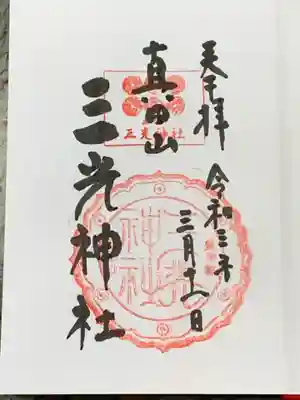 奉拝
令和三年
三月十一日
真田山
三光神社
三光神社
三光
神社